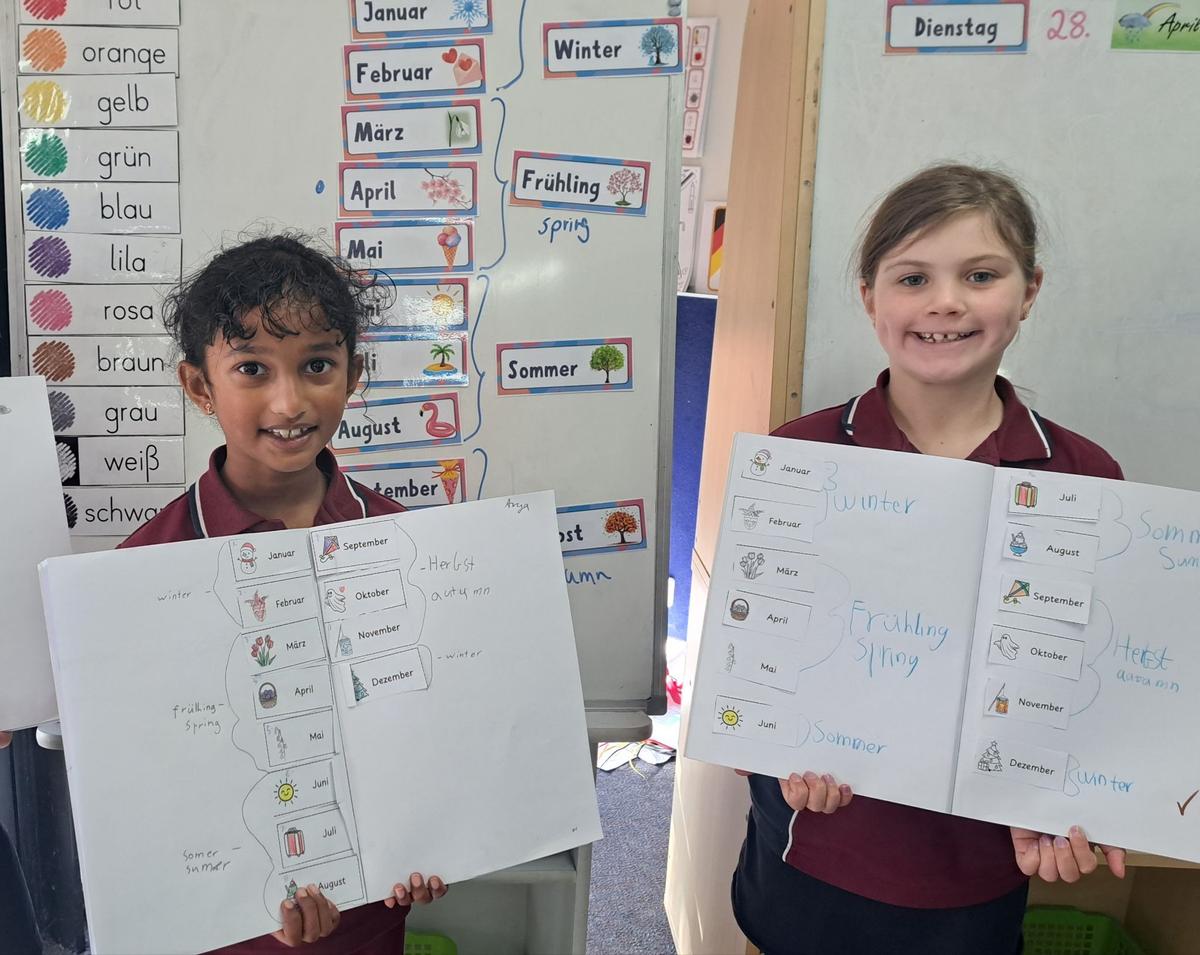 rot
orange
gelb
grün
blau
lila
rosa
braun
grau
weiß
schwar
Januar
Februar
März
April
Mai
August
tember
Winter
Frühling
spring
Sommer
bst
umn
Dienstag
28.
April
Arya
Januar
Februar
März
April
Mai
Juni
Juli
August
September
Oktober
November
Dezember
winter -
frülhing-
spring
somer -
sumer
-Herbst
autumn
-winter
Januar
Februar
März
April
Mai
Juni
winter
Frühling
Spring
Sommer
Juli
August
September
Oktober
November
Dezember
Somm
Sum
Herbst
autumn
winter